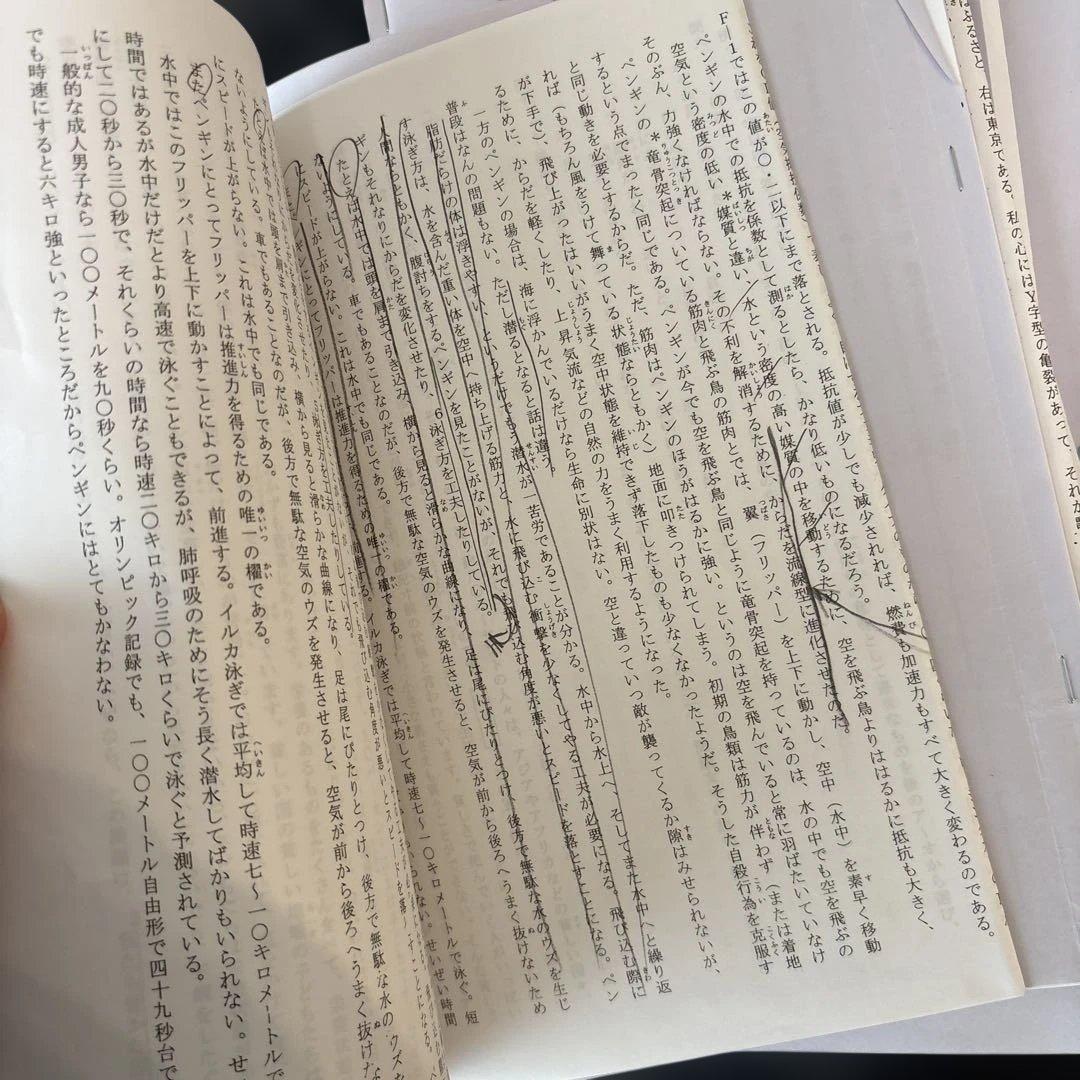 はふるさと、右は東京である。私の心にはY字型の亀裂があって、それが
F―1ではこの値が〇・二以下にまで落とされる。抵抗値が少しでも減少されれば、燃費も加速力もすべて大きく変わるのである。
ペンギンの水中での抵抗を係数として測るとしたら、かなり低いものになるだろう。
空気という密度の低い*媒質と違い、水という密度の高い媒質の中を移動するために、空を飛ぶ鳥よりははるかに抵抗も大きく、
そのぶん、力強くなければならない。その不利を解消するために、からだを流線型に進化させたのだ。
ペンギンの*竜骨突起についている筋肉と飛ぶ鳥の筋肉とでは、翼（フリッパー）を上下に動かし、空中（水中）を素早く移動
するという点でまったく同じである。ペンギンが今でも空を飛ぶ鳥と同じように竜骨突起を持っているのは、水の中でも空を飛ぶの
と同じ動きを必要とするからだ。ただ、筋肉はペンギンのほうがはるかに強い。というのは空を飛んでいると常に羽ばたいていなけ
れば（もちろん風をうけて舞っている状態ならともかく）地面に叩きつけられてしまう。初期の鳥類は筋力が伴わず（または着地
が下手で、飛び上がったはいいがうまく空中状態を維持できず落下したものも少なくなかったようだ。そうした自殺行為を克服す
るために、からだを軽くしたり、上昇気流などの自然の力をうまく利用するようになった。
一方のペンギンの場合は、海に浮かんでいるだけなら生命に別状はない。空と違っていつ敵が襲ってくるか隙はみせられないが、
普段はなんの問題もない。ただし潜るとなると話は違う。
脂肪だらけの体は浮きやすい、というだけでもう潜水が一苦労であることが分かる。水中から水上へ、そしてまた水中へと繰り返
す泳ぎ方は、水を含んだ重い体を空中へ持ち上げる筋力と、水に飛び込む衝撃を少なくしてやる工夫が必要になる。飛び込む際に
人間ならともかく、腹討ちをするペンギンを見たことがないが、それでも飛び込む角度が悪いとスピードを落とすことになる。ペン
ギンもそれなりにからだを変化させたり、6泳ぎ方を工夫したりしている。
たとえば水中では頭を肩まで引き込み、横から見ると滑らかな曲線になり、足は尾にぴたりとつけ、後方で無駄な水のウズを生じ
ないようにしている。車でもあることなのだが、後方で無駄な空気のウズを発生させると、空気が前から後ろへうまく抜けないため
にスピードが上がらない。これは水中でも同じである。
ペンギンにとってフリッパーは推進力を得るための唯一の櫂である。
前進する。イルカ泳ぎでは平均して時速七～一〇キロメートルで泳ぐ。短
横から見ると滑らかな曲線になり、足は尾にぴたりとつけ、後方で無駄な水のウズを
ないようにしている。車でもあることなのだが、後方で無駄な空気のウズを発生させると、空気が前から後ろへうまく抜けな
にスピードが上がらない。これは水中でも同じである。
またペンギンにとってフリッパーは推進力を得るための唯一の櫂である。
水中ではこのフリッパーを上下に動かすことによって、前進する。イルカ泳ぎでは平均して時速七～一〇キロメートルで
時間ではあるが水中だけだとより高速で泳ぐこともできるが、肺呼吸のためにそう長く潜水してばかりもいられない。せ
にして二〇秒から三〇秒で、それくらいの時間なら時速二〇キロから三〇キロくらいで泳ぐと予測されている。
一般的な成人男子なら一〇〇メートルを九〇秒くらい。オリンピック記録でも、一〇〇メートル自由形で四十九秒台で
でも時速にすると六キロ強といったところだからペンギンにはとてもかなわない。